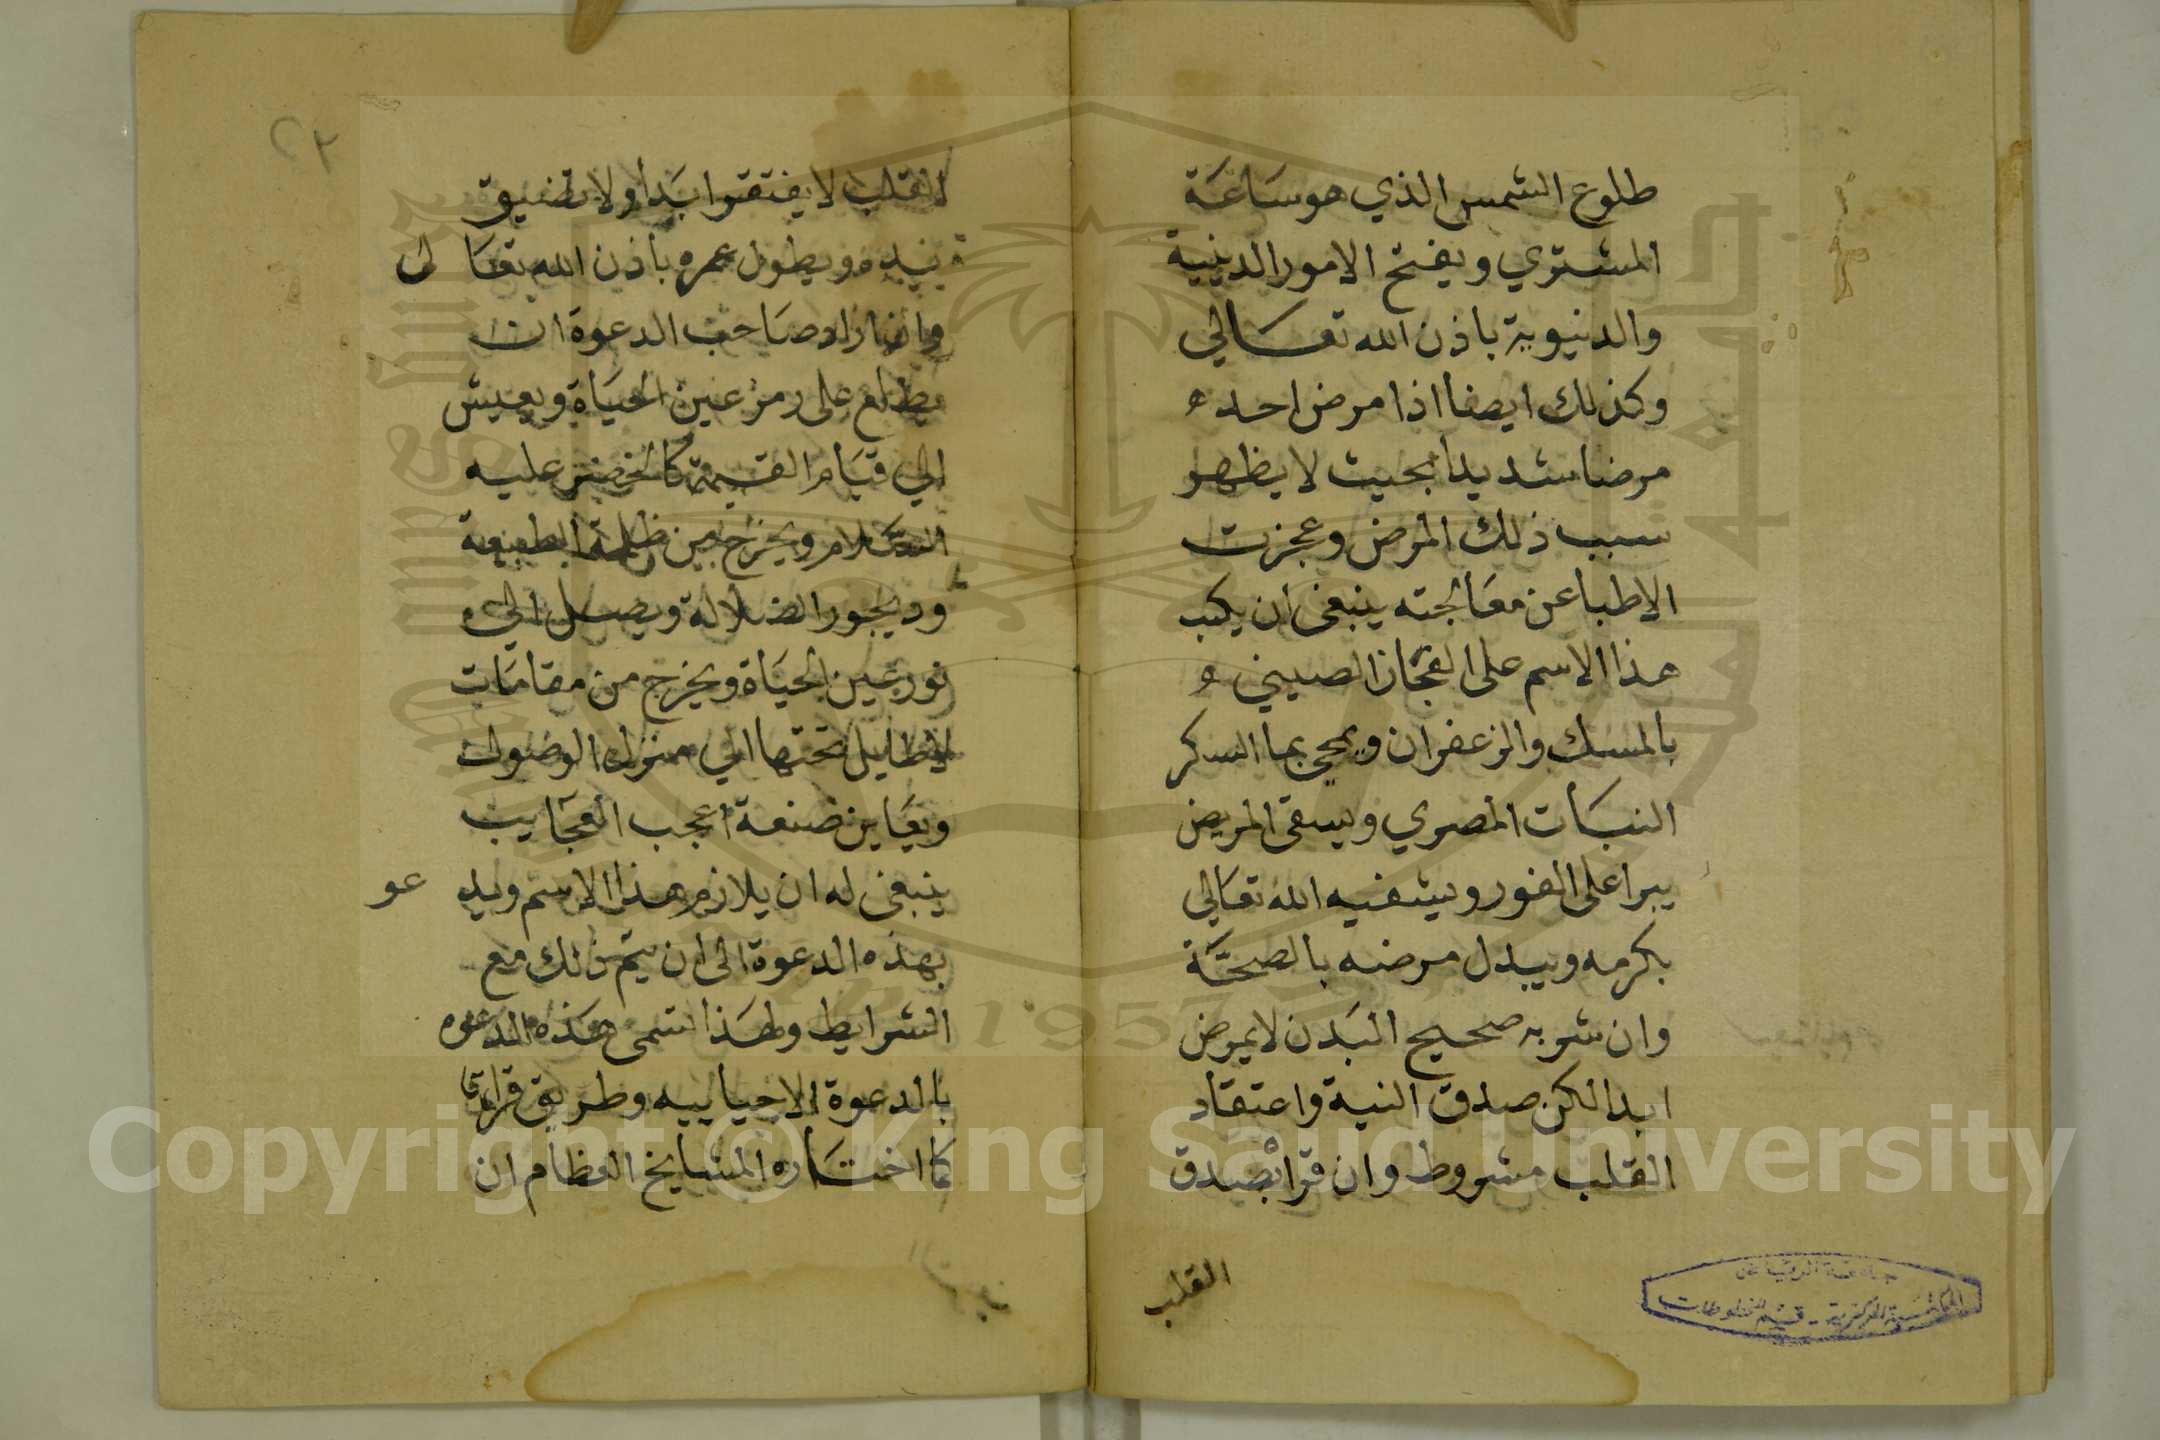 طلوع الشمس الذي هو ساعة
المشتري ويفتح الامور الدينية
والدنيوية باذن الله تعالي
وكذلك ايضا اذا مرض احد
مرضا شديدا بحيث لا يظهر
سبب ذلك المرض وعجزت
الاطبا عن معالجته ينبغى ان يكتب
هذا الاسم على الفجان الصيني
بالمسك والزعفران ويمحى بما السكر
النبات المصري ويسقى المريض
يبرا على الفور ويشفيه الله تعالي
بكرمه ويبدل مرضه بالصحة
وان شربه صحيح البدن لا يمرض
ابدا لكن صدق النية واعتقاد
القلب مشروط وان قرا بصدق
القلب
جامعة الرياض
المكتبة المركزية - قسم المخطوطات
٢٢
القلب لا يفتقر ابدا ولا تضيق
يده ويطول عمره باذن الله تعالى
وان اراد صاحب الدعوة ان
يطلع على رمز عين الحياة ويعيش
الي قيام القيمة كالخضر عليه
السلام ويخرج من ظلمة الطبيعة
وديجور الضلالة ويصل الي
نور عين الحياة ويخرج من مقامات
تحتها الي منزل الوصول
ويعاين صنعة اعجب العجايب
ينبغى له ان يلازم هذا الاسم ويدعو
بهذه الدعوة الى ان يتم ذلك مع
الشرايط ولهذا سمى هذه الدعوه
بالدعوة الاحياييه وطريق قراتها
كما اختاره المشايخ العظام ان
Copyright © King Saud University
1957